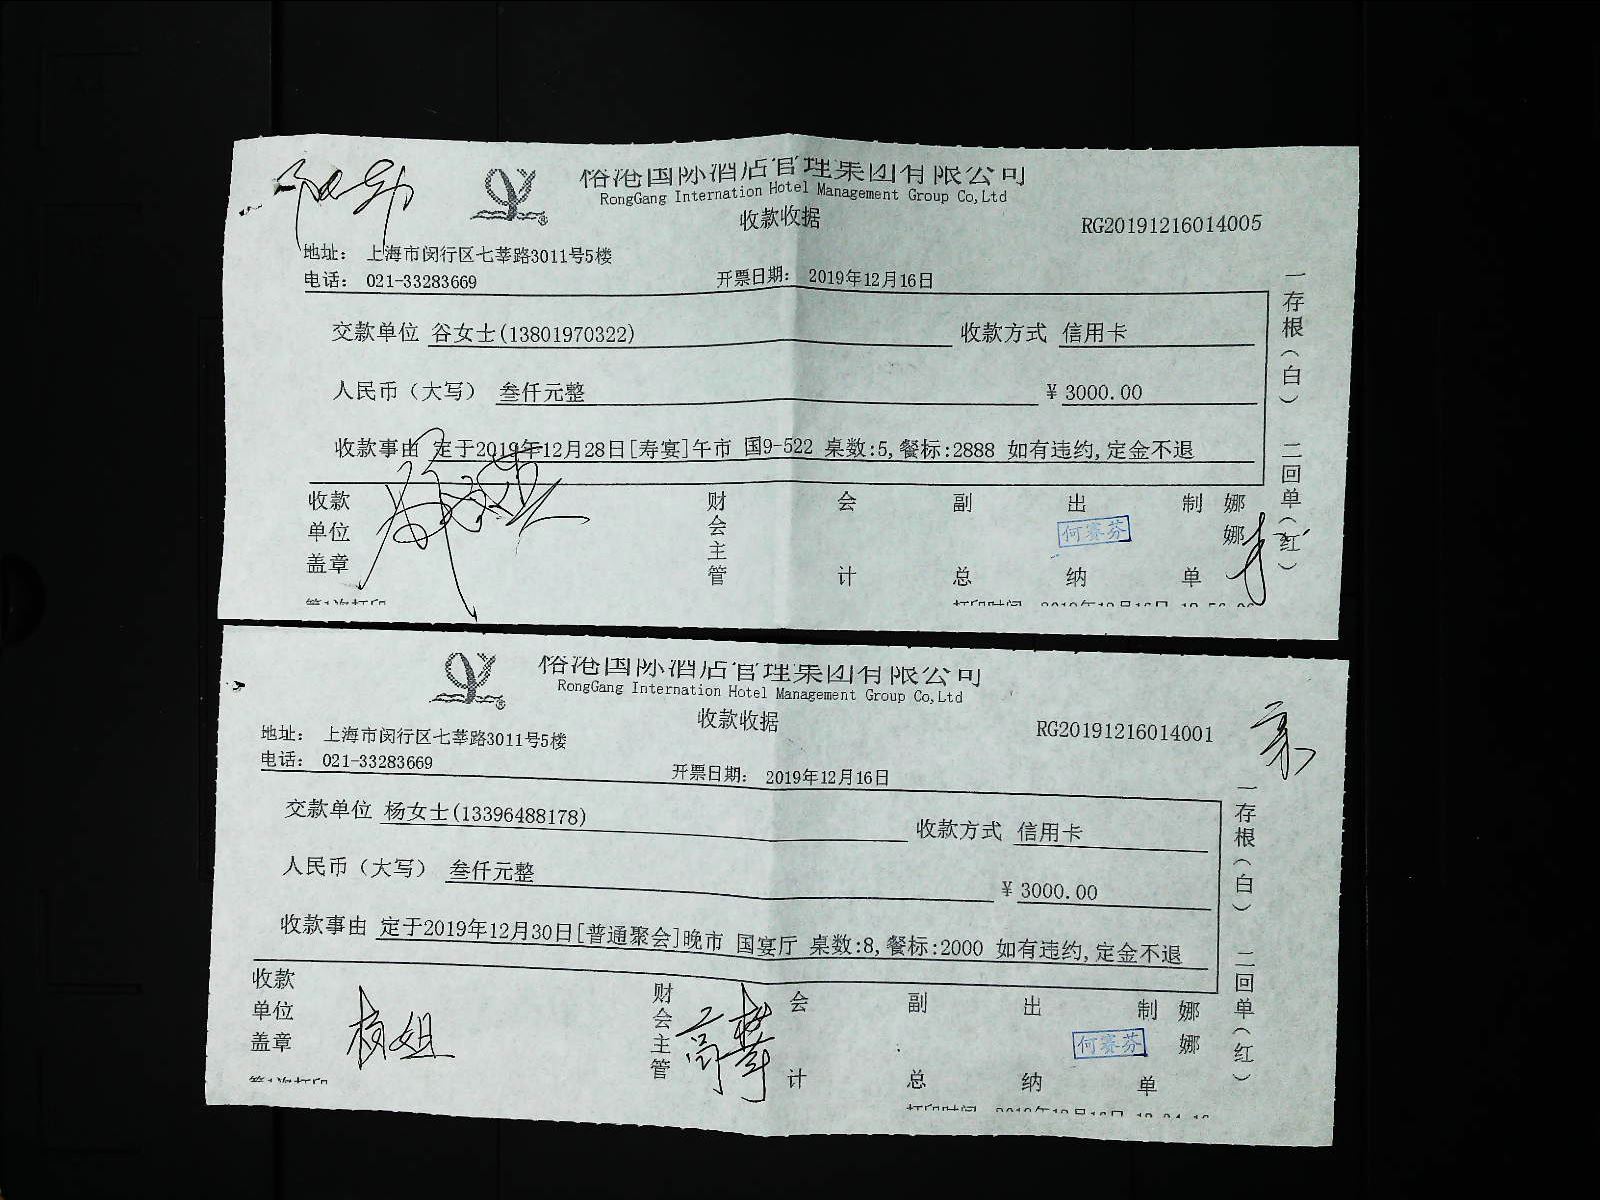 裕港国际酒店管理集团有限公司
RongGang Internation Hotel Management Group Co,Ltd
收款收据
RG20191216014005
地址： 上海市闵行区七莘路3011号5楼
电话： 021-33283669 开票日期： 2019年12月16日
交款单位 谷女士(13801970322) 收款方式 信用卡
人民币（大写） 叁仟元整 ¥ 3000.00
收款事由 定于2019年12月28日[寿宴]午市 国9-522 桌数:5,餐标:2888 如有违约,定金不退
收款单位盖章 财会主管 会计 副总 出纳 制单 娜娜
何赛芬
一存根（白） 二回单（红）
第1次打印 打印时间 2019年12月16日
裕港国际酒店管理集团有限公司
RongGang Internation Hotel Management Group Co,Ltd
收款收据
RG20191216014001
地址： 上海市闵行区七莘路3011号5楼
电话： 021-33283669 开票日期： 2019年12月16日
交款单位 杨女士(13396488178) 收款方式 信用卡
人民币（大写） 叁仟元整 ¥ 3000.00
收款事由 定于2019年12月30日[普通聚会]晚市 国宴厅 桌数:8,餐标:2000 如有违约,定金不退
收款单位盖章 财会主管 会计 副总 出纳 制单 娜娜
何赛芬
一存根（白） 二回单（红）
第1次打印 打印时间 2019年12月16日